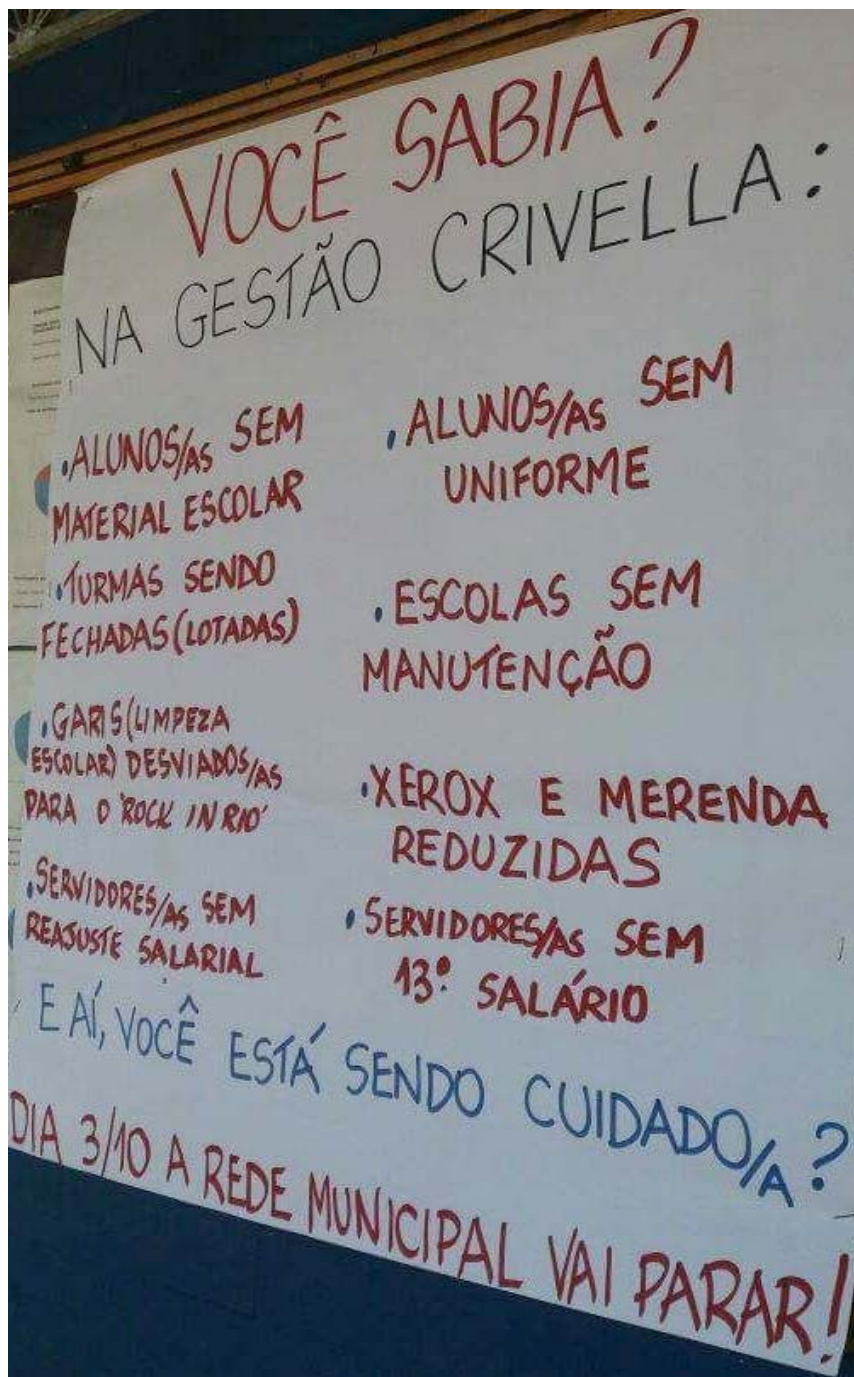 VOCÊ SABIA?
NA GESTÃO CRIVELLA:
.ALUNOS/AS SEM
MATERIAL ESCOLAR
.TURMAS SENDO
FECHADAS (LOTADAS)
.GARIS (LIMPEZA
ESCOLAR) DESVIADOS/AS
PARA O 'ROCK IN RIO'
.SERVIDORES/AS SEM
REAJUSTE SALARIAL
.ALUNOS/AS SEM
UNIFORME
.ESCOLAS SEM
MANUTENÇÃO
.XEROX E MERENDA
REDUZIDAS
.SERVIDORES/AS SEM
13º SALÁRIO
E AÍ, VOCÊ ESTÁ SENDO CUIDADO/A?
DIA 3/10 A REDE MUNICIPAL VAI PARAR!